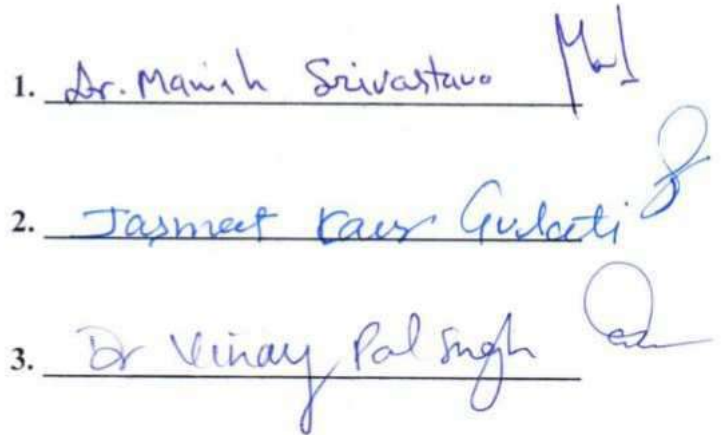 1. Dr. Manish Srivastava
2. Jasmeet Kaur Gulati
3. Dr Vinay Pal Singh